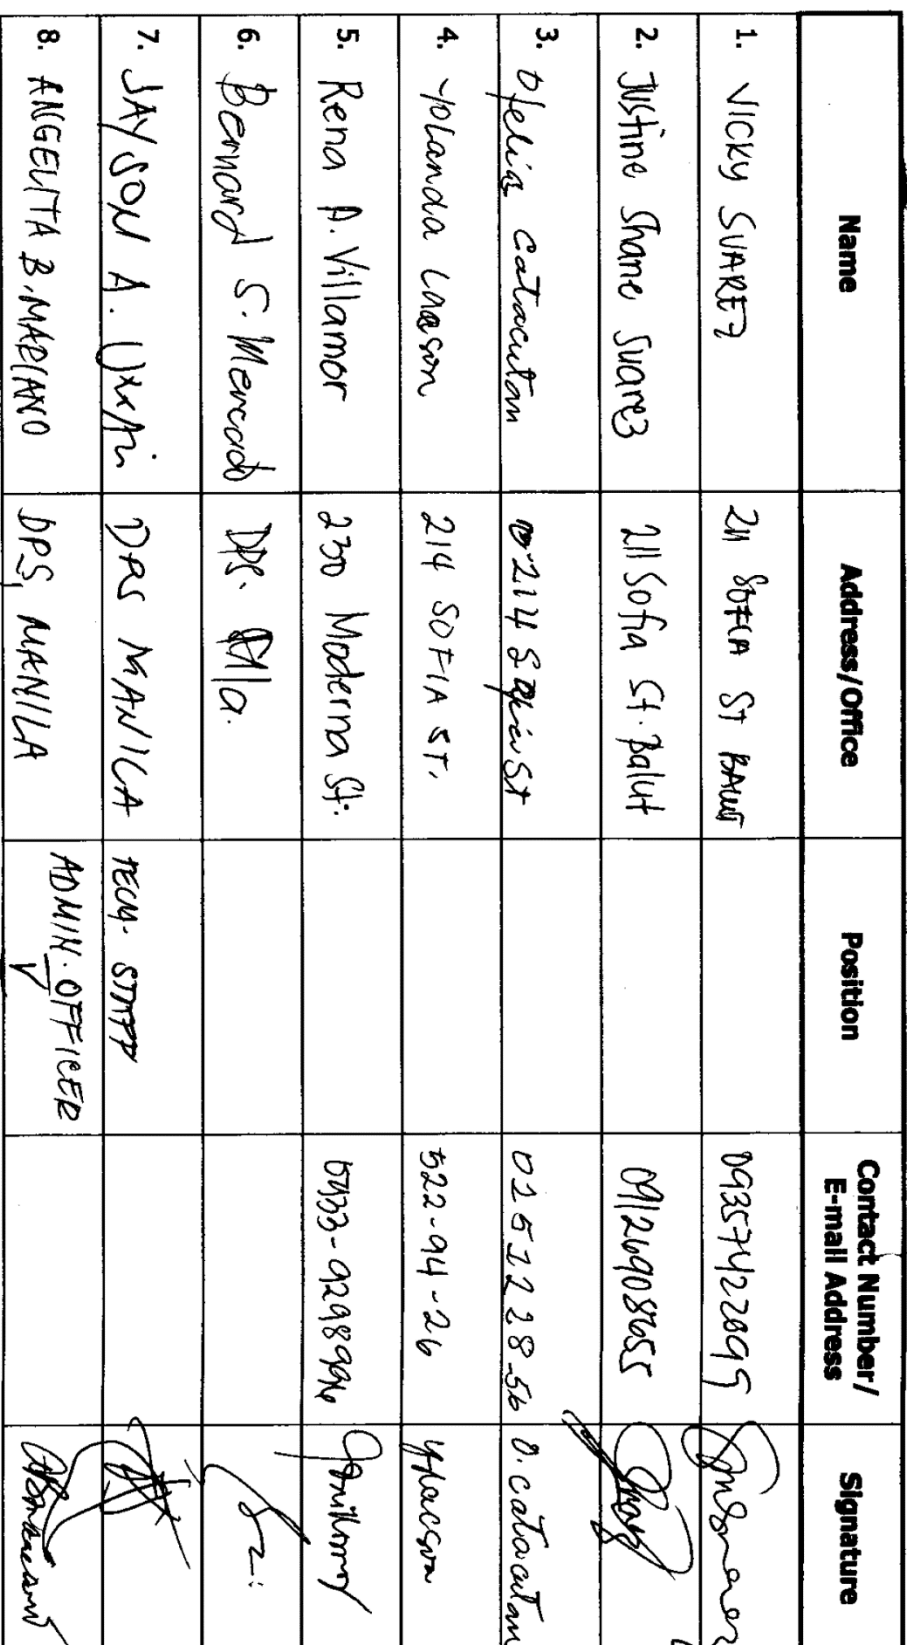 Name Address/Office Position Contact Number/ E-mail Address Signature
1. VICKY SUAREZ 211 SOFIA ST BALUT 09357422695
2. Justine Shane Suarez 211 Sofia St. Balut 09126908655
3. Ofelia Catacutan 214 Sofia St O. Catacutan
4. Yolanda Lacson 214 SOFIA ST. 522-94-26 YLacson
5. Rena A. Villamor 230 Moderna St.
6. Bernard S. Mercado DPS. Mla.
7. JAYSON A. DPS MANILA TECH. STAFF
8. ANGELITA B. MARIANO DPS, MANILA ADMIN. OFFICER